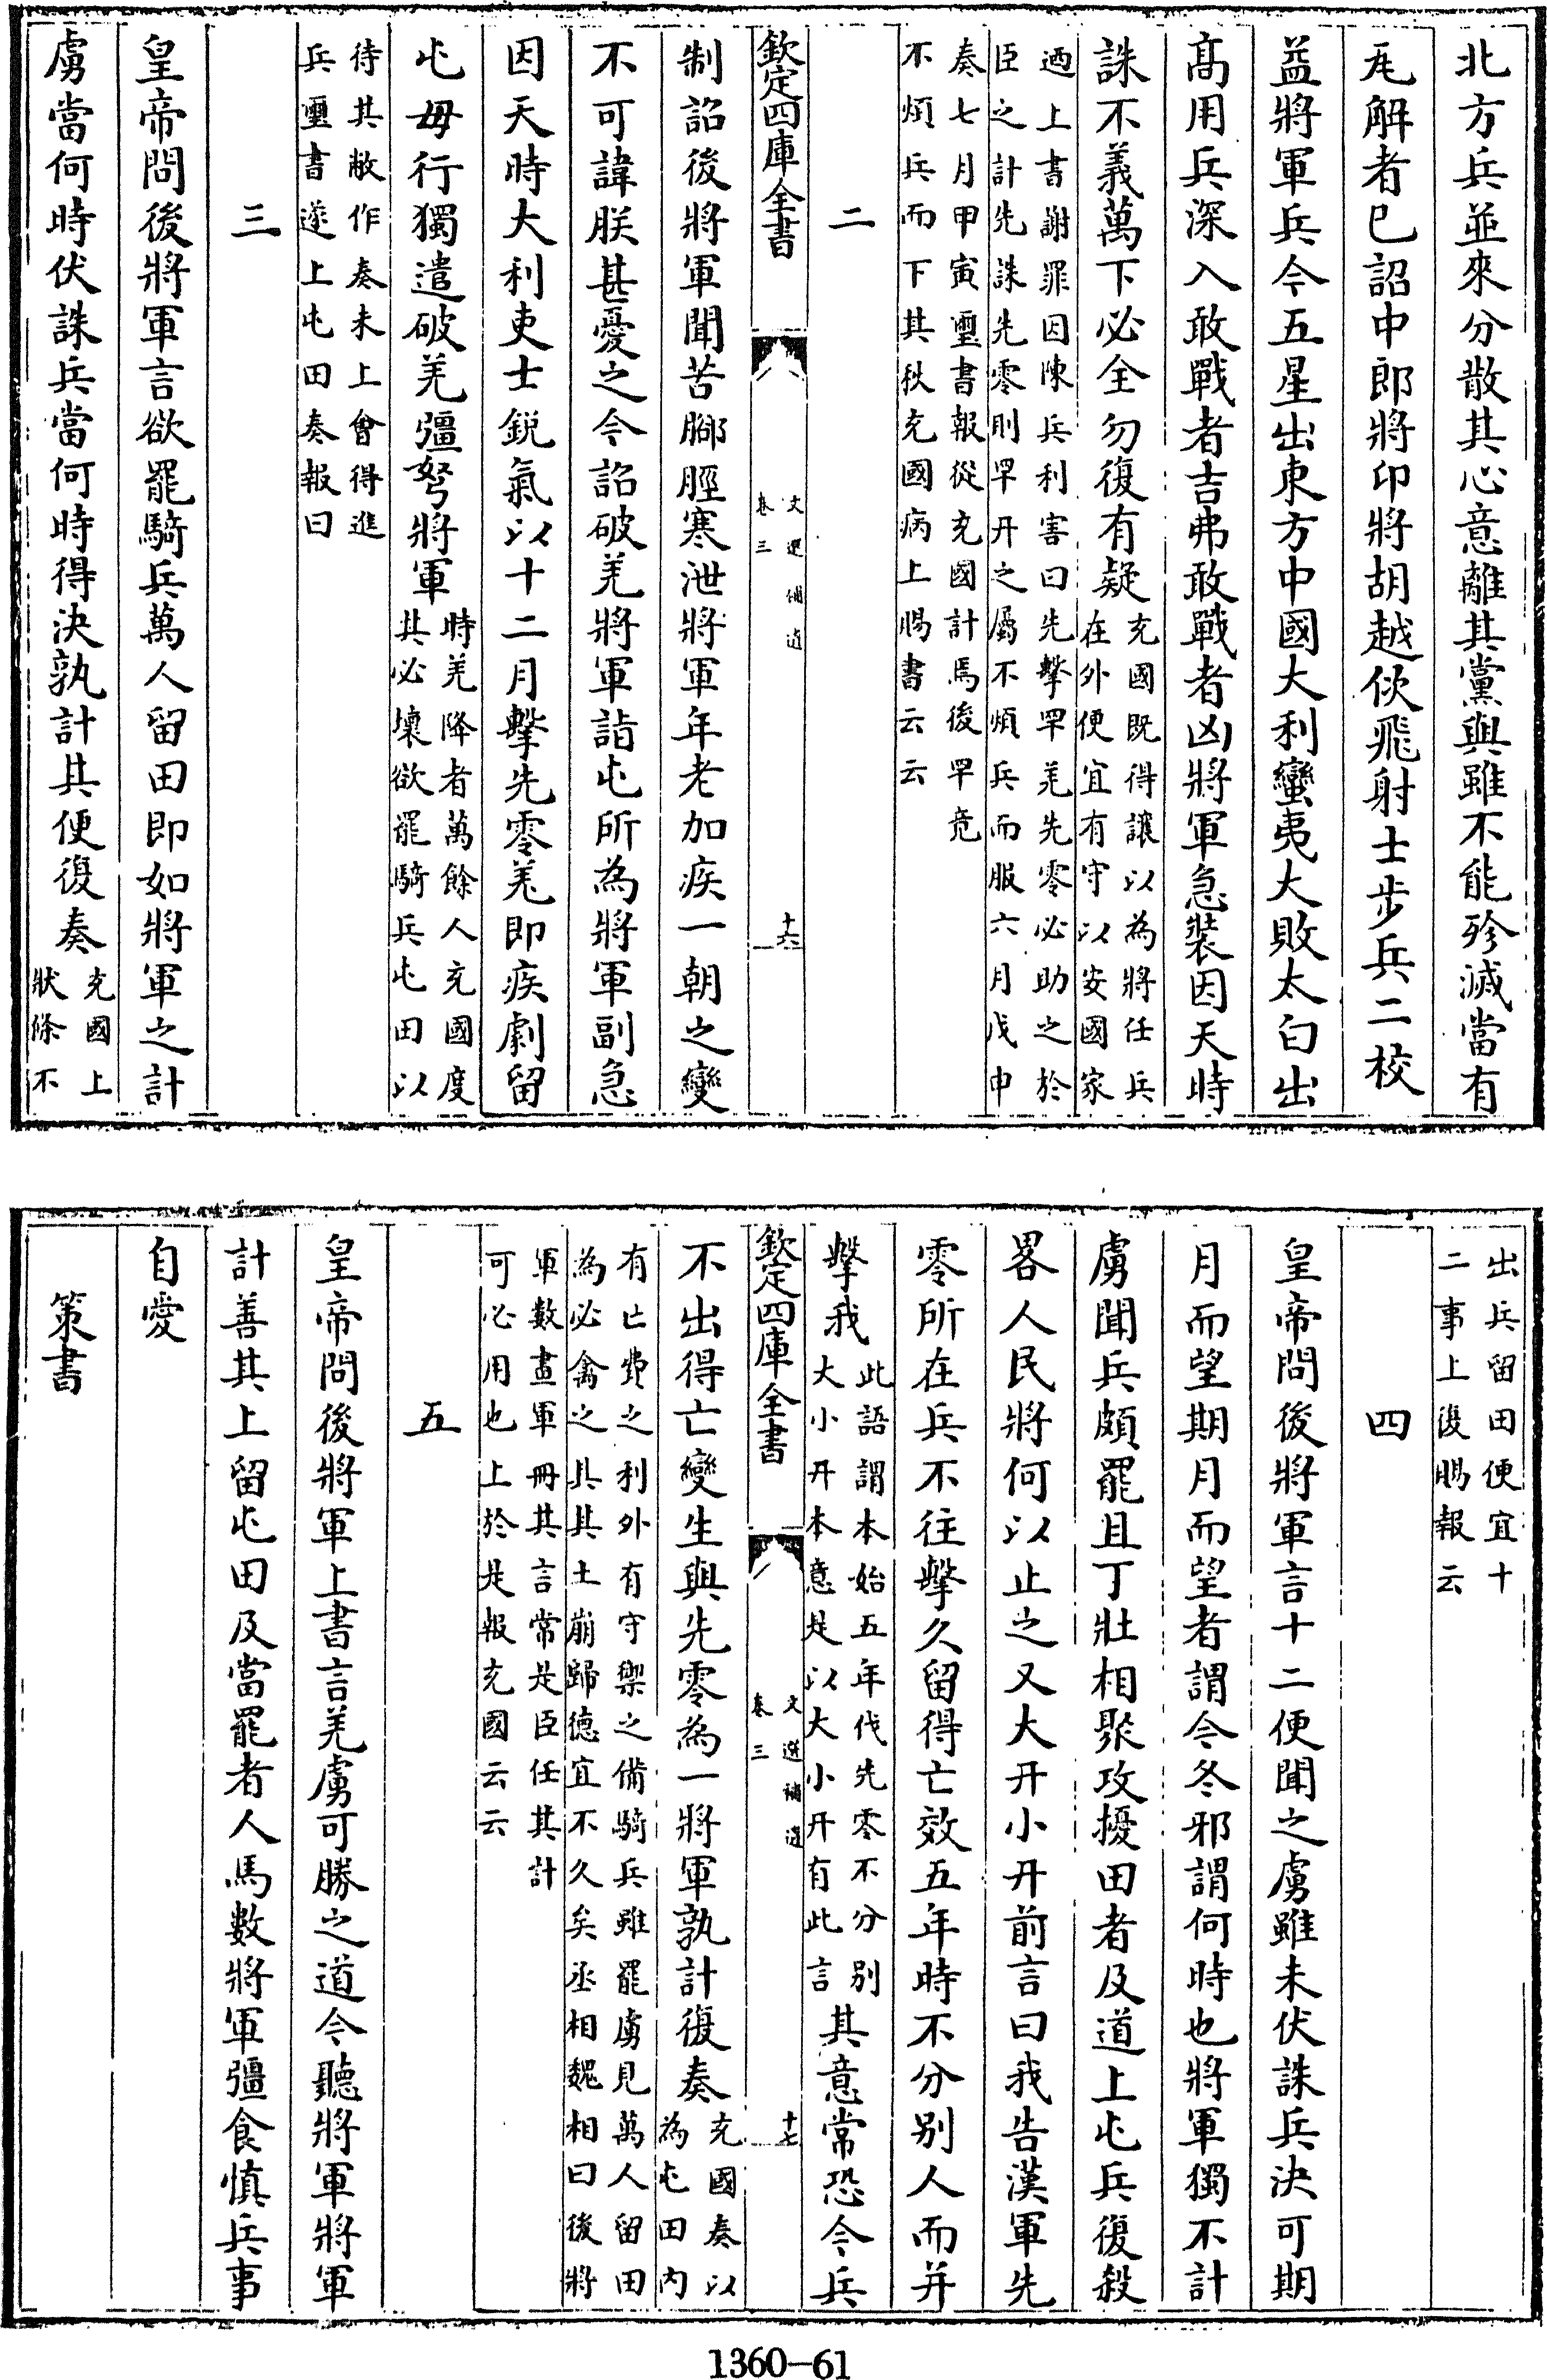 北方兵並來分散其心意離其黨與雖不能殄滅當有
瓦解者已詔中郎將卬將胡越佽飛射士步兵二校
益將軍兵今五星出東方中國大利蠻夷大敗太白出
髙用兵深入敢戰者吉弗敢戰者凶將軍急裝因天時
誅不義萬下必全勿復有疑充國既得讓以為將任兵
在外便宜有守以安國家
迺上書謝罪因陳兵利害曰先擊罕羌先零必助之於
臣之計先誅先零則罕幵之屬不煩兵而服六月戊申
奏七月甲寅璽書報從充國計焉後罕竟
不煩兵而下其秋充國病上賜書云云
二
欽定四庫全書
文選補遺
卷三
十六
制詔後將軍聞苦腳脛寒泄將軍年老加疾一朝之變
不可諱朕甚憂之今詔破羌將軍詣屯所為將軍副急
因天時大利吏士銳氣以十二月擊先零羌即疾劇留
屯毋行獨遣破羌彊弩將軍時羌降者萬餘人充國度
其必壞欲罷騎兵屯田以
待其敝作奏未上會得進
兵璽書遂上屯田奏報曰
三
皇帝問後將軍言欲罷騎兵萬人留田即如將軍之計
虜當何時伏誅兵當何時得決孰計其便復奏充國上
狀條不
出兵留田便宜十
二事上復賜報云
四
皇帝問後將軍言十二便聞之虜雖未伏誅兵決可期
月而望期月而望者謂今冬邪謂何時也將軍獨不計
虜聞兵頗罷且丁壯相聚攻擾田者及道上屯兵復殺
畧人民將何以止之又大幵小幵前言曰我告漢軍先
零所在兵不往擊久留得亡效五年時不分别人而并
擊我此語謂本始五年伐先零不分别
大小幵本意是以大小幵有此言
其意常恐今兵
欽定四庫全書
文選補遺
卷三
十七
不出得亡變生與先零為一將軍孰計復奏充國奏以
為屯田内
有亡費之利外有守禦之備騎兵雖罷虜見萬人留田
為必禽之具其土崩歸德宜不久矣丞相魏相曰後將
軍數畫軍冊其言常是臣任其計
可必用也上於是報充國云云
五
皇帝問後將軍上書言羌虜可勝之道今聽將軍將軍
計善其上留屯田及當罷者人馬數將軍彊食慎兵事
自愛
策書
1360-61